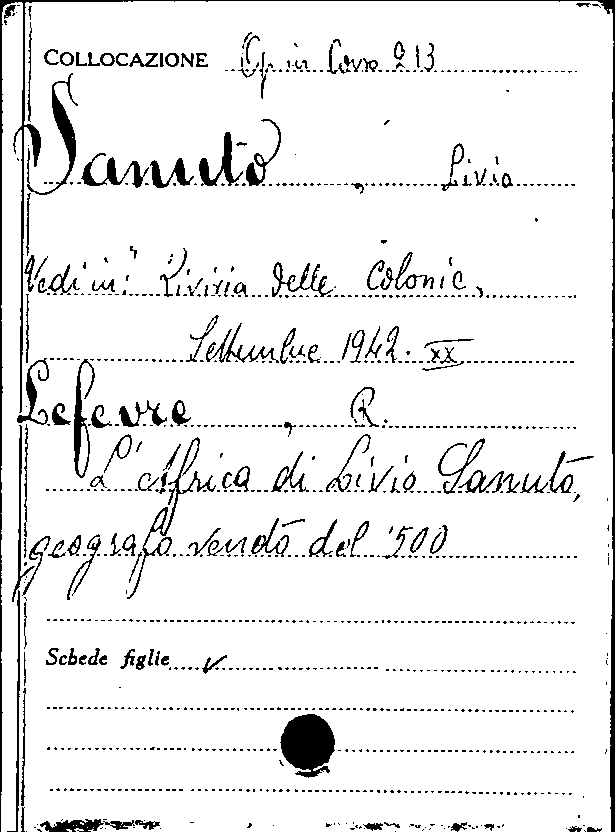 COLLOCAZIONE Op in Corso 213
Sanuto, Livio
Vedi in: "Rivista delle Colonie,
Settembre 1942. XX
Lefevre, R.
L'Africa di Livio Sanuto,
geografo del '500
Schede figlie